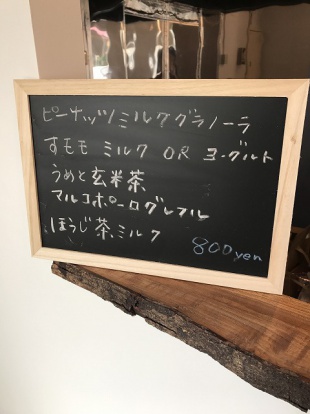 ピーナッツミルクグラノーラ
すもも ミルク OR ヨーグルト
うめと玄米茶
マルコポーログレフル
ほうじ茶ミルク
800yen